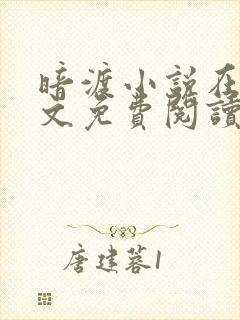 暗渡小说在
文免費閱讀
唐建蓉1